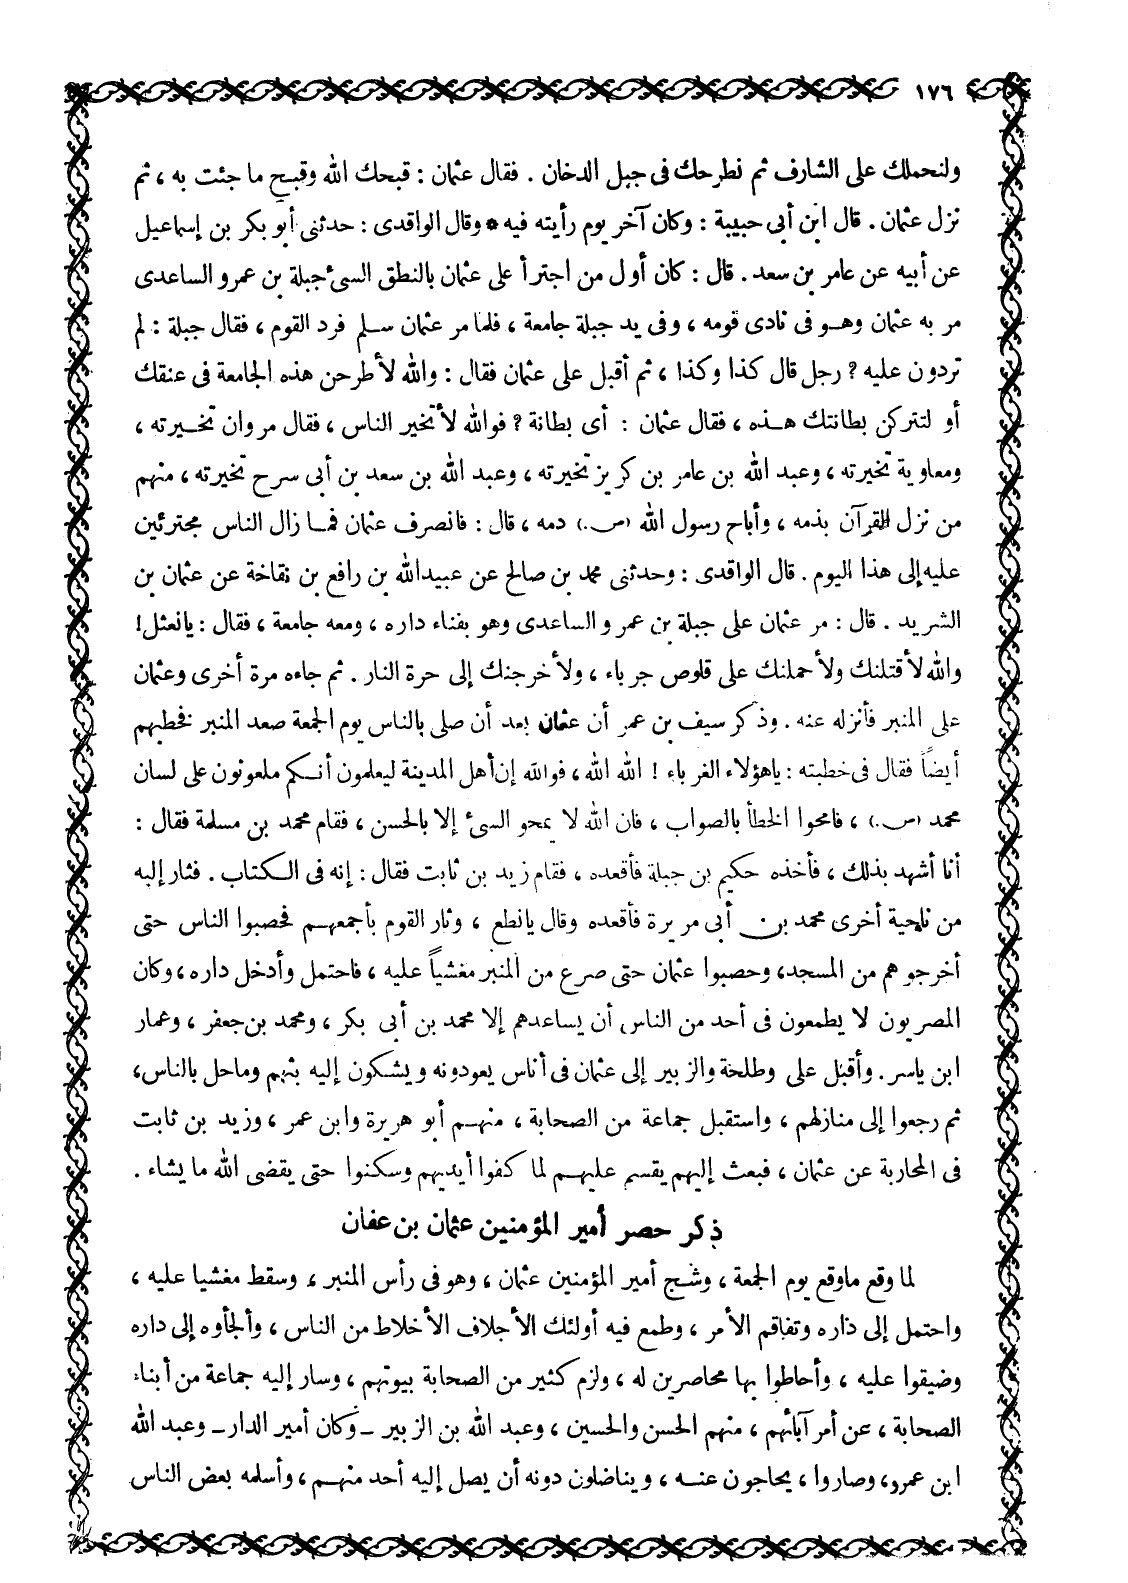 ١٧٦
ولنحملك على الشارف ثم نطرحك فى جبل الدخان . فقال عثمان : قبحك الله وقبح ما جئت به ، ثم
نزل عثمان . قال ابن أبى حبيبة : وكان آخر يوم رأيته فيه * وقال الواقدى : حدثنى أبو بكر بن إسماعيل
عن أبيه عن عامر بن سعد . قال : كان أول من اجترأ على عثمان بالنطق السىء جبلة بن عمرو الساعدى
مر به عثمان وهو فى نادى قومه ، وفى يد جبلة جامعة ، فلما مر عثمان سلم فرد القوم ، فقال جبلة : لم
تردون عليه ? رجل قال كذا وكذا ، ثم أقبل على عثمان فقال : والله لأطرحن هذه الجامعة فى عنقك
أو لتتركن بطانتك هذه ، فقال عثمان : أى بطانة ? فوالله لأتخير الناس ، فقال مروان تخيرته ،
ومعاوية تخيرته ، وعبد الله بن عامر بن كريز تخيرته ، وعبد الله بن سعد بن أبى سرح تخيرته ، منهم
من نزل القرآن بذمه ، وأباح رسول الله (ص.) دمه ، قال : فانصرف عثمان فما زال الناس مجترئين
عليه إلى هذا اليوم . قال الواقدى : وحدثنى محمد بن صالح عن عبيدالله بن رافع بن نقاخة عن عثمان بن
الشريد . قال : مر عثمان على جبلة بن عمرو الساعدى وهو بفناء داره ، ومعه جامعة ، فقال : يانعثل!
والله لأقتلنك ولأحملنك على قلوص جرباء ، ولأخرجنك إلى حرة النار . ثم جاءه مرة أخرى وعثمان
على المنبر فأنزله عنه . وذكر سيف بن عمر أن عثمان بعد أن صلى بالناس يوم الجمعة صعد المنبر فخطبهم
أيضاً فقال فى خطبته : ياهؤلاء الغرباء ! الله الله ، فوالله إن أهل المدينة ليعلمون أنكم ملعونون على لسان
محمد (ص.) ، فامحوا الخطأ بالصواب ، فان الله لا يمحو السىء إلا بالحسن ، فقام محمد بن مسلمة فقال :
أنا أشهد بذلك ، فأخذه حكيم بن جبلة فأقعده ، فقام زيد بن ثابت فقال : إنه فى الكتاب . فثار إليه
من ناحية أخرى محمد بن أبى مريرة فأقعده وقال يانطع ، وثار القوم بأجمعهم فحصبوا الناس حتى
أخرجوهم من المسجد، وحصبوا عثمان حتى صرع من المنبر مغشياً عليه ، فاحتمل وأدخل داره ، وكان
المصريون لا يطمعون فى أحد من الناس أن يساعدهم إلا محمد بن أبى بكر ، ومحمد بن جعفر ، وعمار
ابن ياسر . وأقبل على وطلحة والزبير إلى عثمان فى أناس يعودونه ويشكون إليه بثهم وماحل بالناس،
ثم رجعوا إلى منازلهم ، واستقبل جماعة من الصحابة ، منهم أبو هريرة وابن عمر ، وزيد بن ثابت
فى المحاربة عن عثمان ، فبعث إليهم يقسم عليهم لما كفوا أيديهم وسكنوا حتى يقضى الله ما يشاء .
ذكر حصر أمير المؤمنين عثمان بن عفان
لما وقع ماوقع يوم الجمعة ، وشج أمير المؤمنين عثمان ، وهو فى رأس المنبر ، وسقط مغشيا عليه ،
واحتمل إلى داره وتفاقم الأمر ، وطمع فيه أولئك الأجلاف الأخلاط من الناس ، وألجأوه إلى داره
وضيقوا عليه ، وأحاطوا بها محاصرين له ، ولزم كثير من الصحابة بيوتهم ، وسار إليه جماعة من أبناء
الصحابة ، عن أمر آبائهم ، منهم الحسن والحسين ، وعبد الله بن الزبير ـ وكان أمير الدار ـ وعبد الله
ابن عمرو، وصاروا ، يحاجون عنه ، ويناضلون دونه أن يصل إليه أحد منهم ، وأسلمه بعض الناس